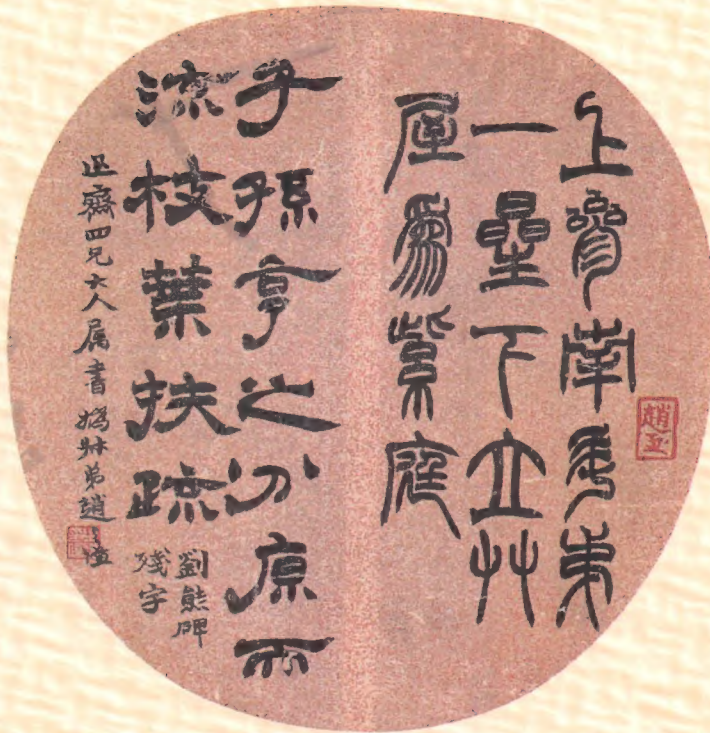 上參南弟
一曐下立艸
屋爲紫庭
子孫亨之分原而
流枝葉扶疏
劉熊碑
殘字
齋四兄大人属書撝叔弟趙之謙